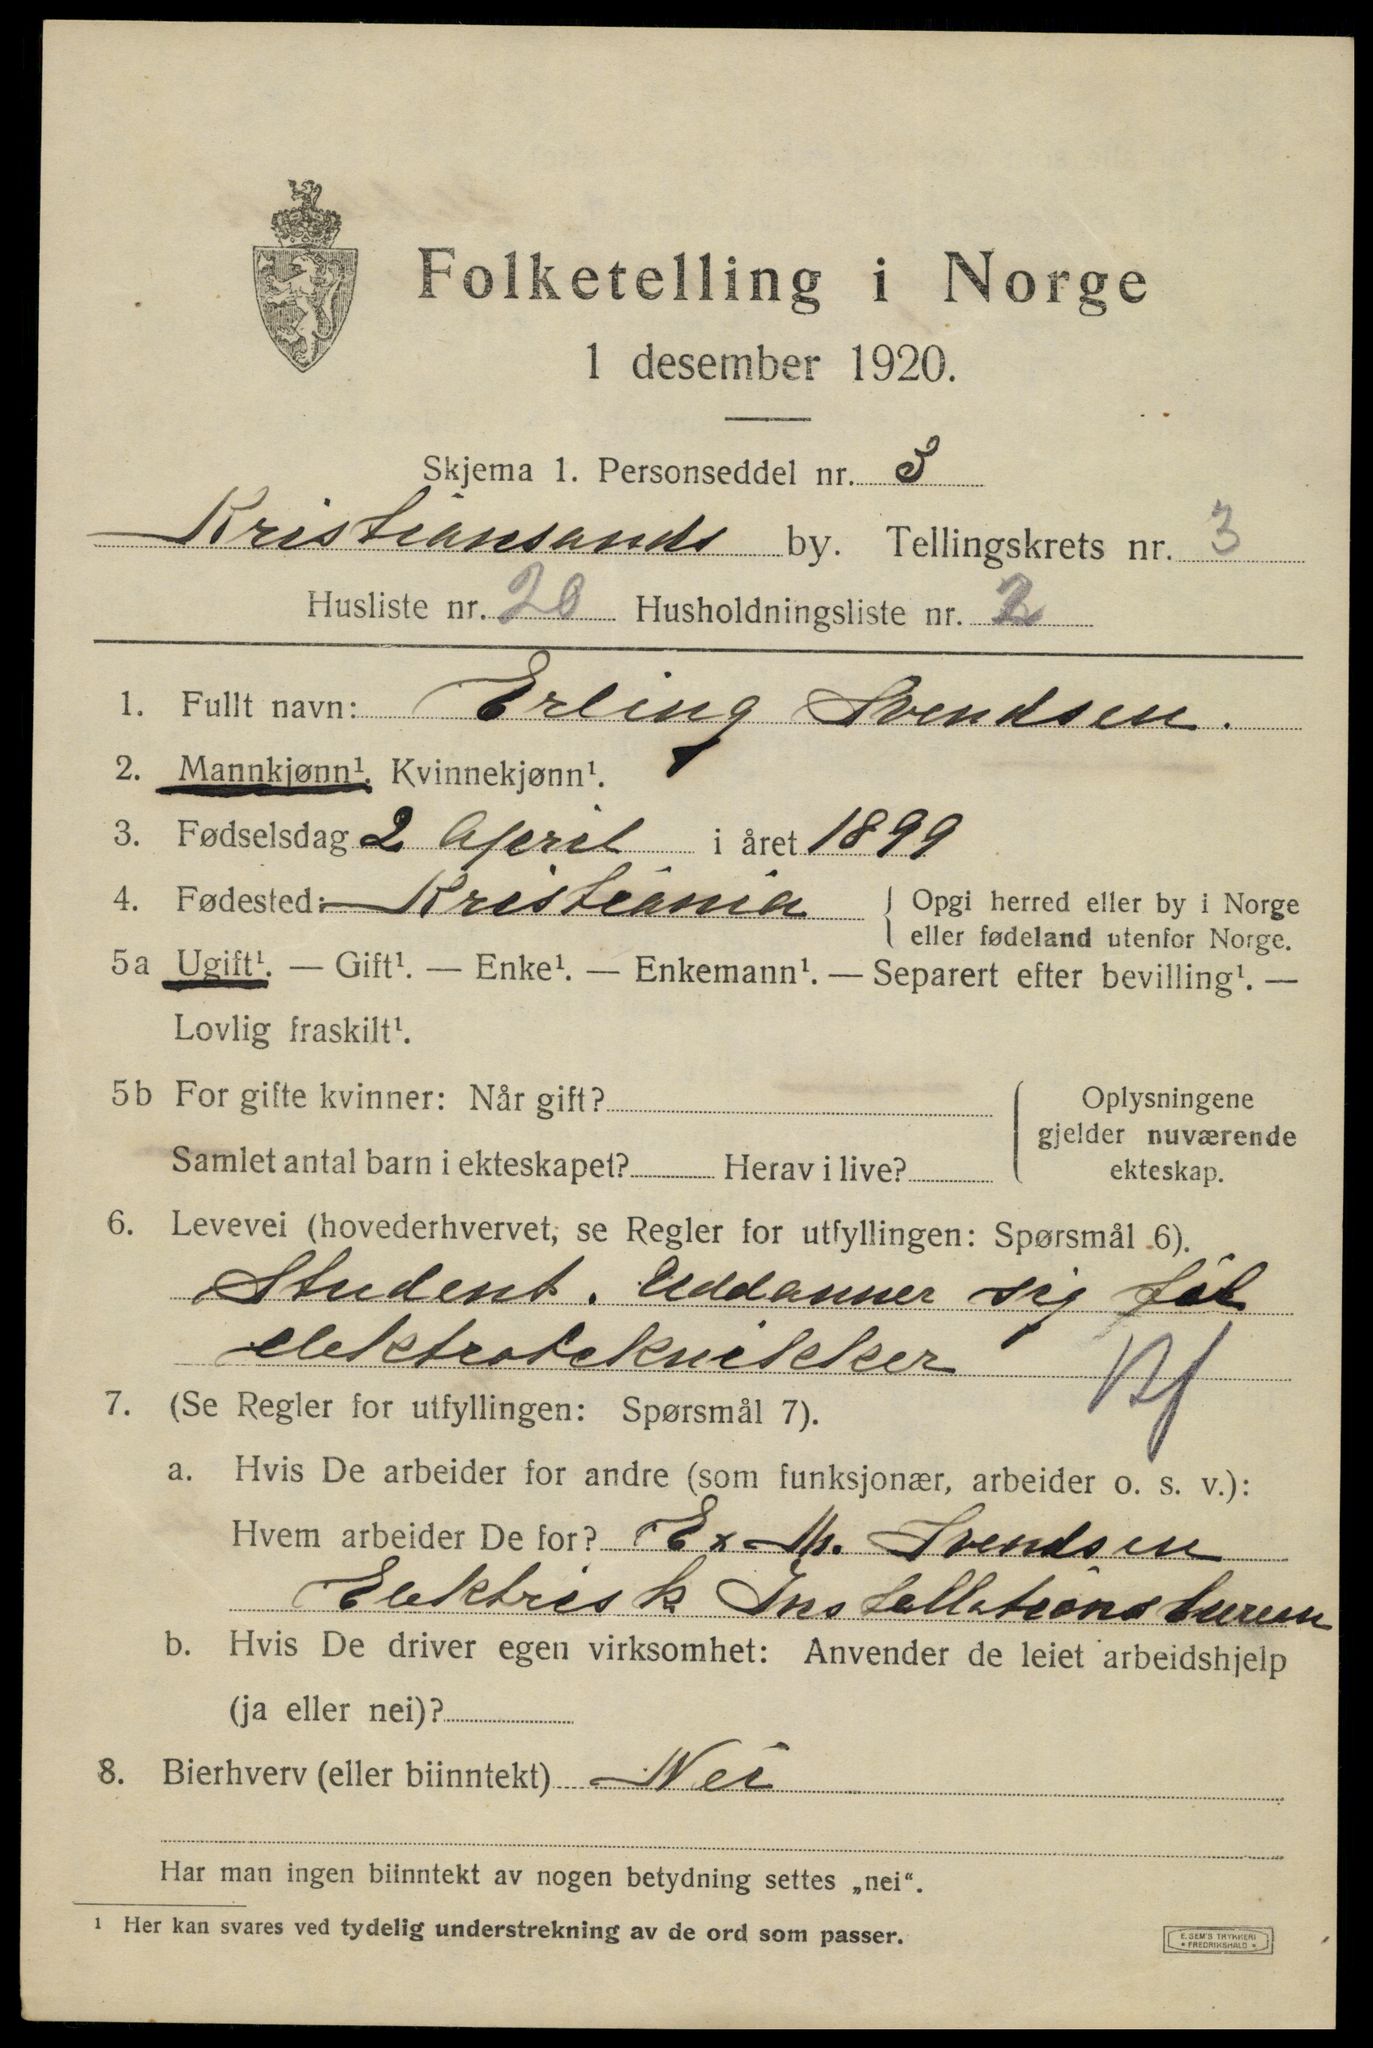 Folketelling i Norge
1 desember 1920.
Skjema 1. Personseddel nr. 3
Kristiansands by. Tellingskrets nr. 3
Husliste nr. 20 Husholdningsliste nr. 2
1. Fullt navn: Erling Svendsen.
2. Mannkjønn¹. Kvinnekjønn¹.
3. Fødselsdag 2 April i året 1899
4. Fødested: Kristiania { Opgi herred eller by i Norge
eller fødeland utenfor Norge.
5a Ugift¹. — Gift¹. — Enke¹. — Enkemann¹. — Separert efter bevilling¹. —
Lovlig fraskilt¹.
5b For gifte kvinner: Når gift?
Samlet antal barn i ekteskapet? Herav i live?
Oplysningene
gjelder nuværende
ekteskap.
6. Levevei (hovederhvervet, se Regler for utfyllingen: Spørsmål 6).
Student. Uddanner sig til
elektrotekniker
7. (Se Regler for utfyllingen: Spørsmål 7).
a. Hvis De arbeider for andre (som funksjonær, arbeider o. s. v.):
Hvem arbeider De for? E x M. Svendsen
Elektrisk Installationsbureu
b. Hvis De driver egen virksomhet: Anvender de leiet arbeidshjelp
(ja eller nei)?
8. Bierhverv (eller biinntekt) Nei
Har man ingen biinntekt av nogen betydning settes „nei“.
¹ Her kan svares ved tydelig understrekning av de ord som passer.
E. SEM'S TRYKKERI
* FREDRIKSHALD *